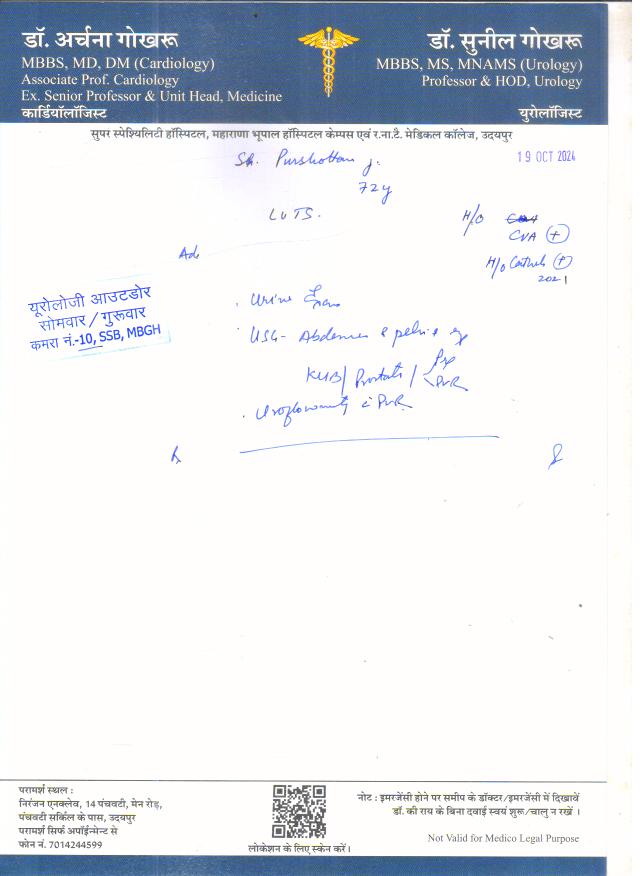 डॉ. अर्चना गोखरू
MBBS, MD, DM (Cardiology)
Associate Prof. Cardiology
Ex. Senior Professor & Unit Head, Medicine
कार्डियॉलॉजिस्ट
डॉ. सुनील गोखरू
MBBS, MS, MNAMS (Urology)
Professor & HOD, Urology
युरोलॉजिस्ट
सुपर स्पेश्यिलिटी हॉस्पिटल, महाराणा भूपाल हॉस्पिटल केम्पस एवं र.ना.टै. मेडिकल कॉलेज, उदयपुर
19 OCT 2024
Sh. Purshottam J.
72y
LUTS.
H/O
CVA (+)
H/o (+)
2021
Adv
यूरोलोजी आउटडोर
सोमवार / गुरूवार
कमरा नं.-10, SSB, MBGH
. Urine
. USG - Abdomen & pelvis
KUB/ Prostate / Pre
PVR
. Uroflowmetry c PVR
परामर्श स्थल :
निरंजन एनक्लेव, 14 पंचवटी, मेन रोड़,
पंचवटी सर्किल के पास, उदयपुर
परामर्श सिर्फ अपॉईन्मेन्ट से
फोन नं. 7014244599
लोकेशन के लिए स्केन करें।
नोट : इमरजेंसी होने पर समीप के डॉक्टर/इमरजेंसी में दिखावें
डॉ. की राय के बिना दवाई स्वयं शुरू/चालु न रखें ।
Not Valid for Medico Legal Purpose